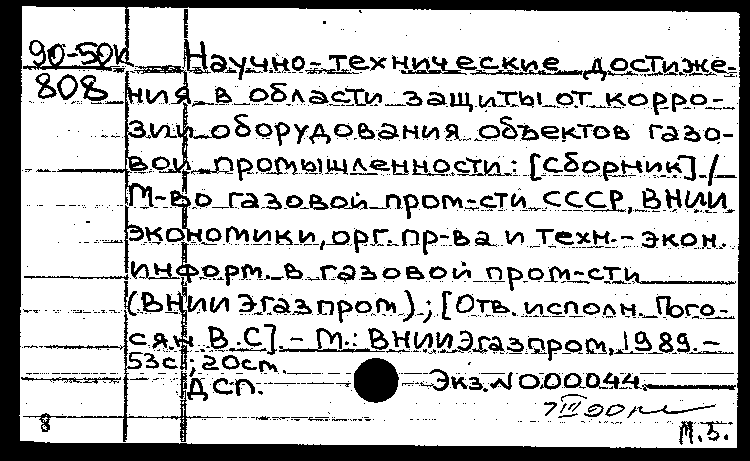 90-50к Научно-технические достиже-
808 ния в области защиты от корро-
зии оборудования объектов газо-
вой промышленности: [Сборник] /
М-во газовой пром-сти СССР, ВНИИ
экономики, орг. пр-ва и техн.-экон.
информ. в газовой пром-сти
(ВНИИЭгазпром); [Отв. исполн. Пого-
сян В.С]. - М.: ВНИИЭгазпром, 1989. -
53с.; 20см.
ДСП. Экз. N000044.
7 III 90
8 М.З.